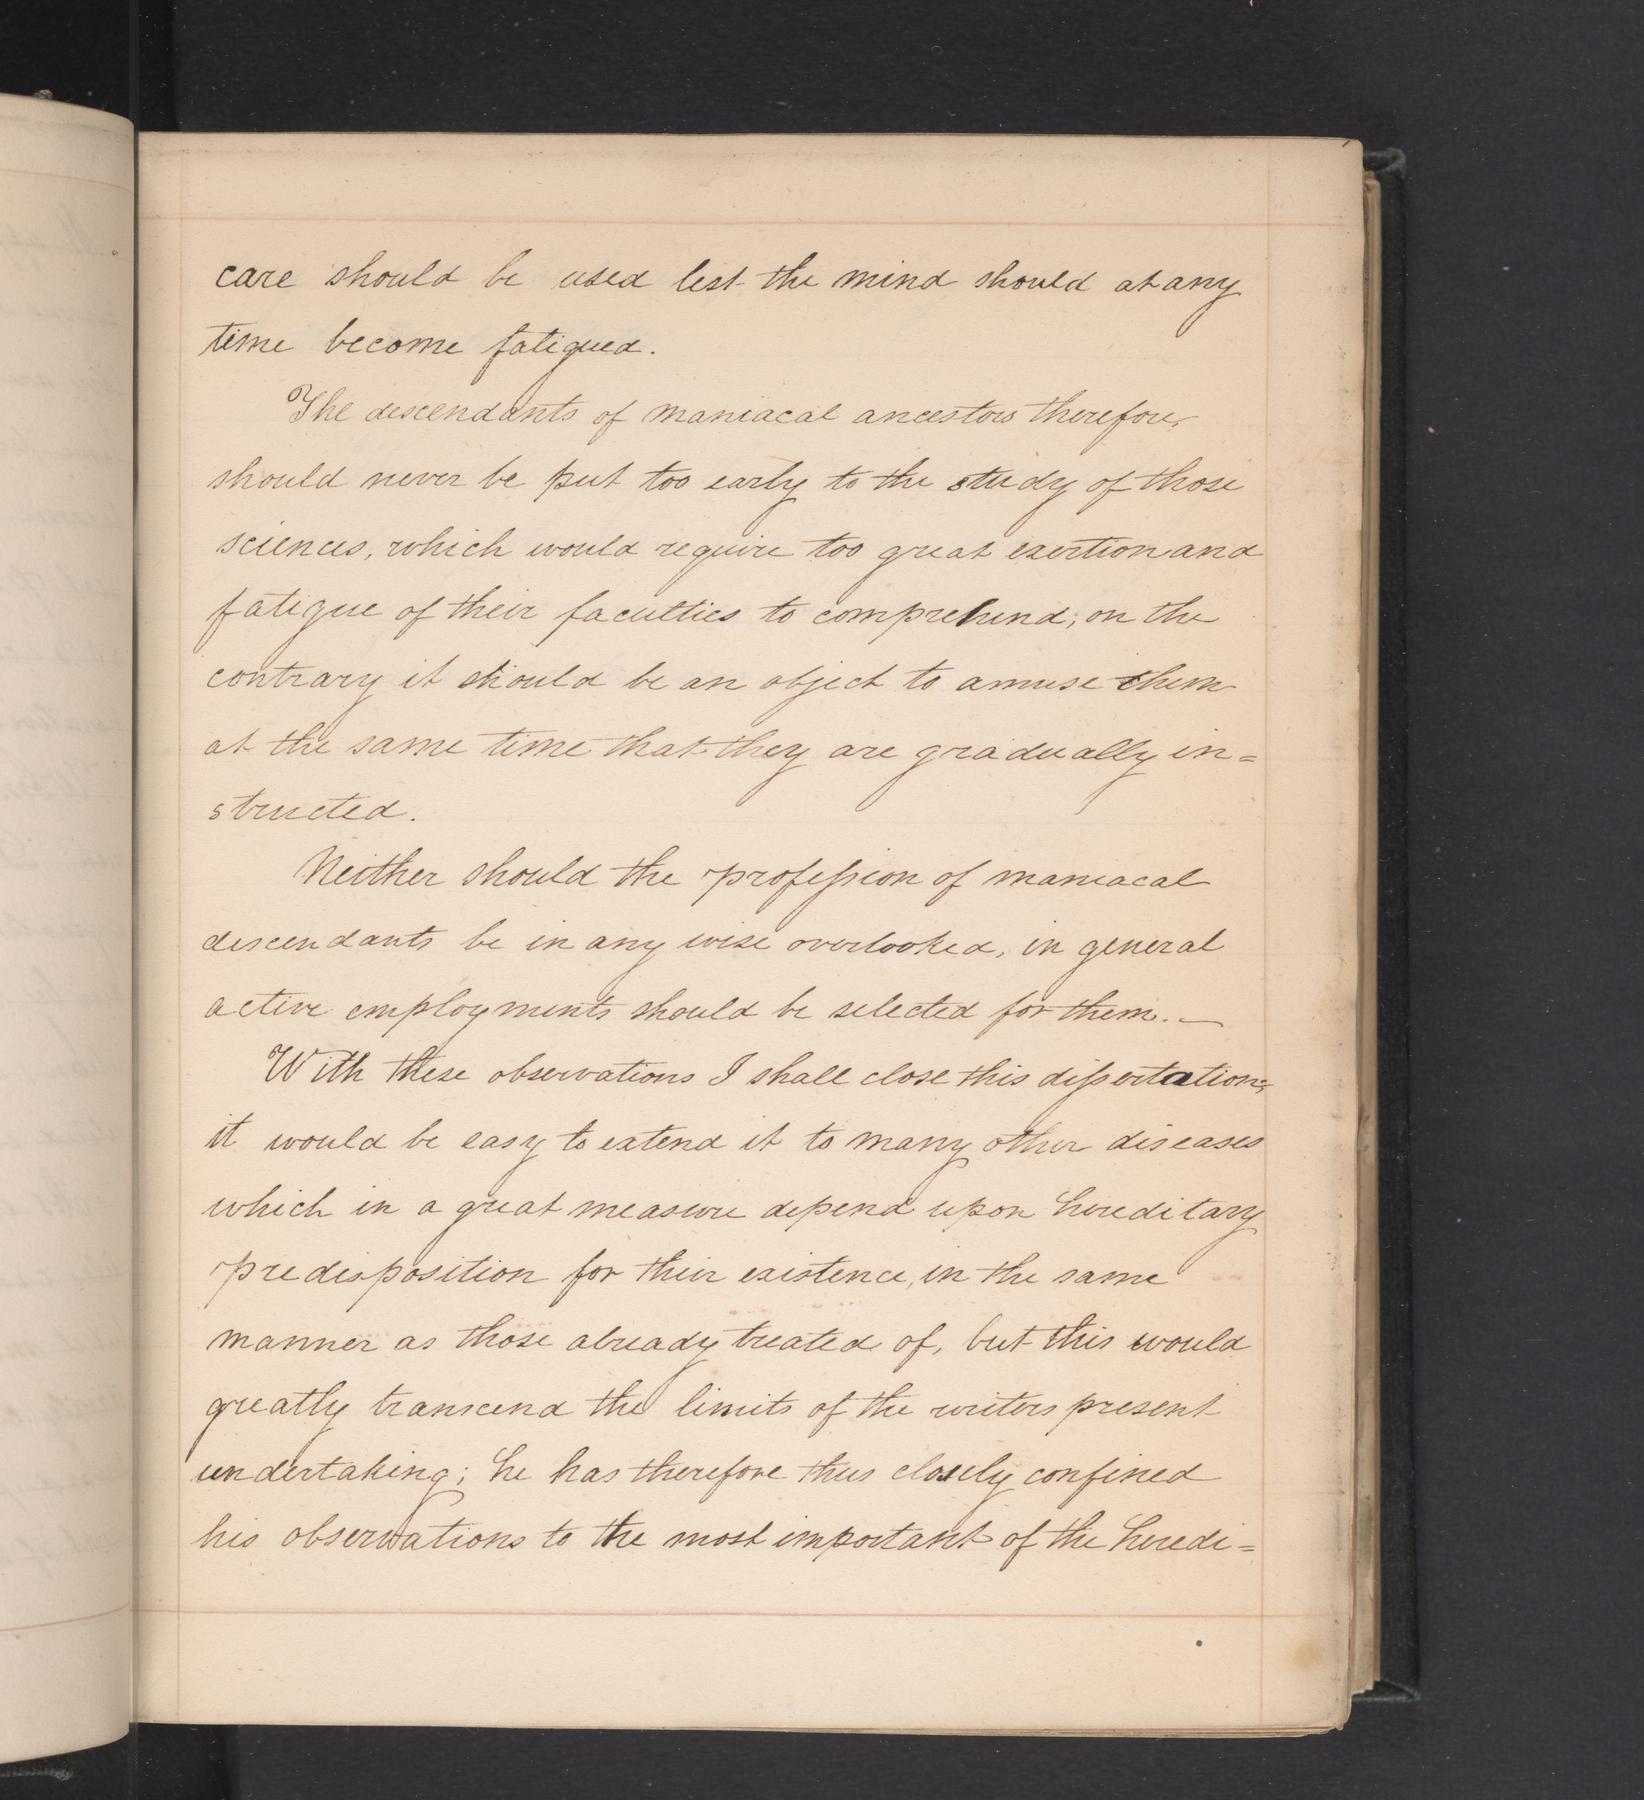 care should be used lest the mind should at any
time become fatigued.
The descendants of maniacal ancestors therefore,
should never be put too early to the study of those
sciences, which would require too great exertion and
fatigue of their faculties to comprehend; on the
contrary it should be an object to amuse them
at the same time that they are gradually in=
structed.
Neither should the profeſsion of maniacal
descendants be in any wise overlooked, in general
active employments should be selected for them. —
With these observations I shall close this diſsertation;
it would be easy to extend it to many other diseases
which in a great measure depend upon hereditary
predisposition for their existence, in the same
manner as those already treated of, but this would
greatly transcend the limits of the writers present
undertaking; he has therefore thus closely confined
his observations to the most important of the heredi=